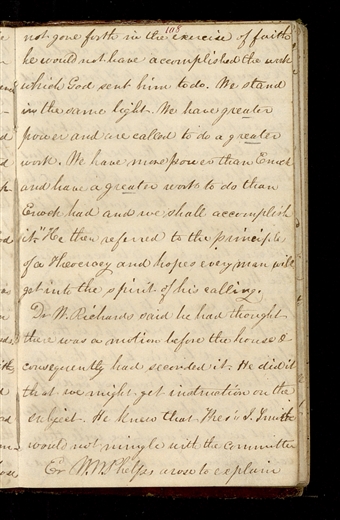 108
not gone forth in the exercise of faith
he would not have accomplished the work
which God sent him to do. We stand
in the same light. We have greater
power and are called to do a greater
work. We have more power than Enoch
and have a greater work to do than
Enoch had and we shall accomplish
it." He then referred to the principle
of a Theocracy and hopes every man will
get into the spirit of his calling.
Dr W. Richards said he had thought
there was a motion before the house &
consequently had seconded it. He did it
that we might get instruction on the
subject. He knew that Pres. J. Smith
would not mingle with the committee
Er W. W. Phelps arose to explain